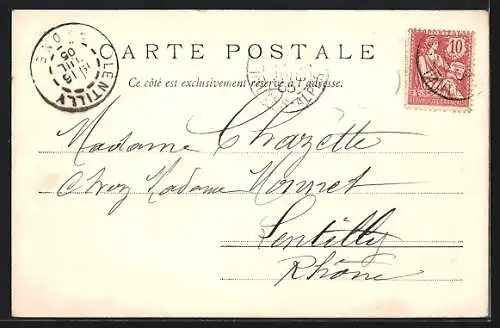 CARTE POSTALE
Ce côté est exclusivement réservé à l'adresse.
LENTILLY
RHONE
15
JUIL
05
10
Madame Chazette
Chez Madame Monnet
Lentilly
Rhône